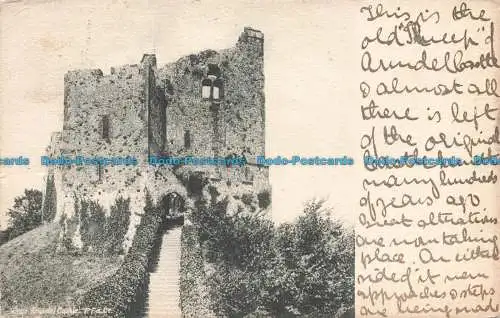 This is the
old "Keep" of
Arundel Castle
& almost all
there is left
of the original
Castle built
many hundreds
of years ago
Great alterations
are now taking
place. An
side of it new
approaches & steps
are being made
Keep Arundel Castle. P.F. Co.
Dodo-Postcards Dodo-Postcards Dodo-Postcards Dodo-Postcards